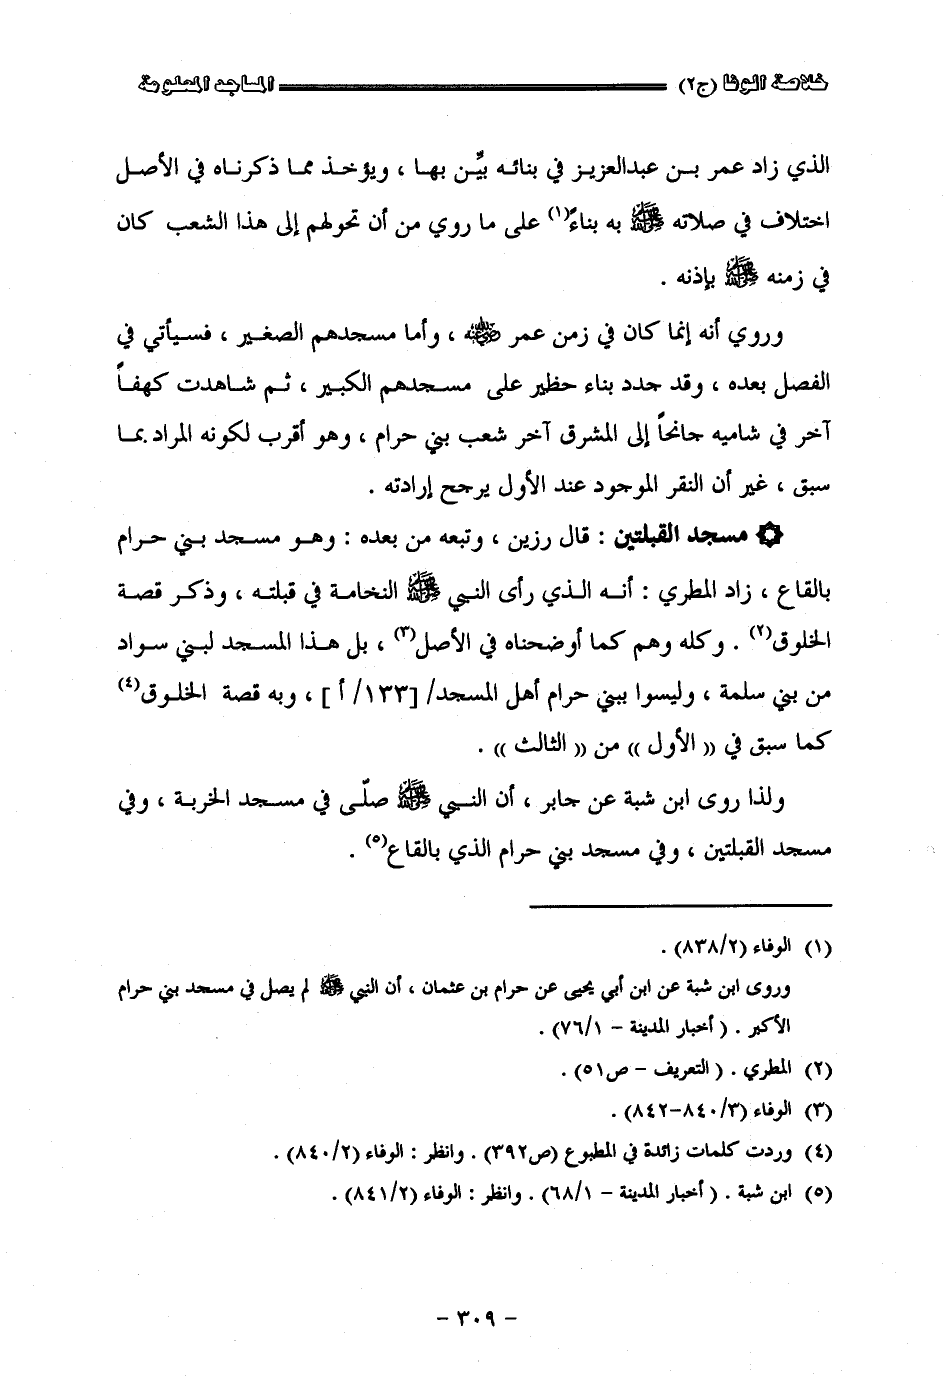 خلاصة الوفا (ج٢) المساجد المعلومة
الذي زاد عمر بن عبدالعزيز في بنائه بيِّن بها ، ويؤخذ مما ذكرناه في الأصل
اختلاف في صلاته ﷺ به بناءً(١) على ما روي من أن تحولهم إلى هذا الشعب كان
في زمنه ﷺ بإذنه .
وروي أنه إنما كان في زمن عمر رضي الله عنه ، وأما مسجدهم الصغير ، فسيأتي في
الفصل بعده ، وقد جدد بناء حظير على مسجدهم الكبير ، ثم شاهدت كهفاً
آخر في شاميه جانحاً إلى المشرق آخر شعب بني حرام ، وهو أقرب لكونه المراد بما
سبق ، غير أن النقر الموجود عند الأول يرجح إرادته .
۞ مسجد القبلتين : قال رزين ، وتبعه من بعده : وهو مسجد بني حرام
بالقاع ، زاد المطري : أنه الذي رأى النبي ﷺ النخامة في قبلته ، وذكر قصة
الخلوق(٢) . وكله وهم كما أوضحناه في الأصل(٣) ، بل هذا المسجد لبني سواد
من بني سلمة ، وليسوا ببني حرام أهل المسجد/ [١٣٣/ أ] ، وبه قصة الخلوق(٤)
كما سبق في (( الأول )) من (( الثالث )) .
ولذا روى ابن شبة عن جابر ، أن النبي ﷺ صلّى في مسجد الخربة ، وفي
مسجد القبلتين ، وفي مسجد بني حرام الذي بالقاع(٥) .
(١) الوفاء (٨٣٨/٢) .
وروى ابن شبة عن ابن أبي يحيى عن حرام بن عثمان ، أن النبي ﷺ لم يصل في مسجد بني حرام
الأكبر . ( أخبار المدينة – ٧٦/١) .
(٢) المطري . ( التعريف – ص٥١) .
(٣) الوفاء (٨٤٠/٣–٨٤٢) .
(٤) وردت كلمات زائدة في المطبوع (ص٣٩٢) . وانظر : الوفاء (٨٤٠/٢) .
(٥) ابن شبة . ( أخبار المدينة – ٦٨/١) . وانظر : الوفاء (٨٤١/٢) .
– ٣٠٩ –